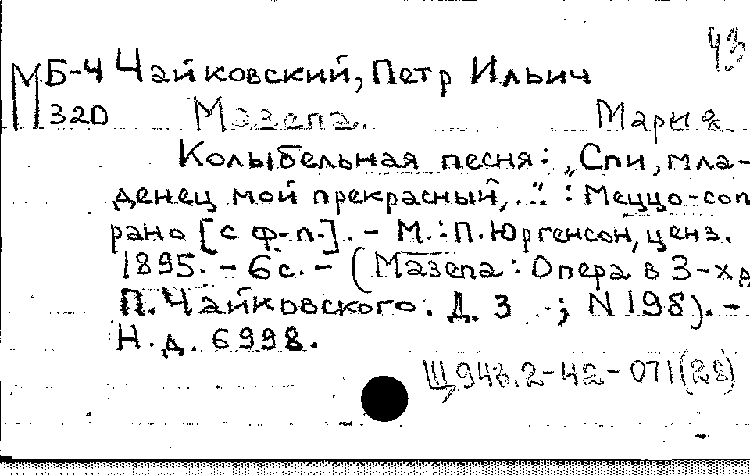 43
МБ-4 Чайковский, Петр Ильич
32D Мазепа. Мария
Колыбельная песня: „Спи, мла-
денец мой прекрасный,..." : Меццо-соп
рано [с ф-п.]. – М.: П. Юргенсон, ценз.
1895. – 6с. – (Мазепа: Опера в 3-х д
П. Чайковского. Д. 3 ; N 198). –
Н. д. 6998.
Щ943.2-42-071(28)